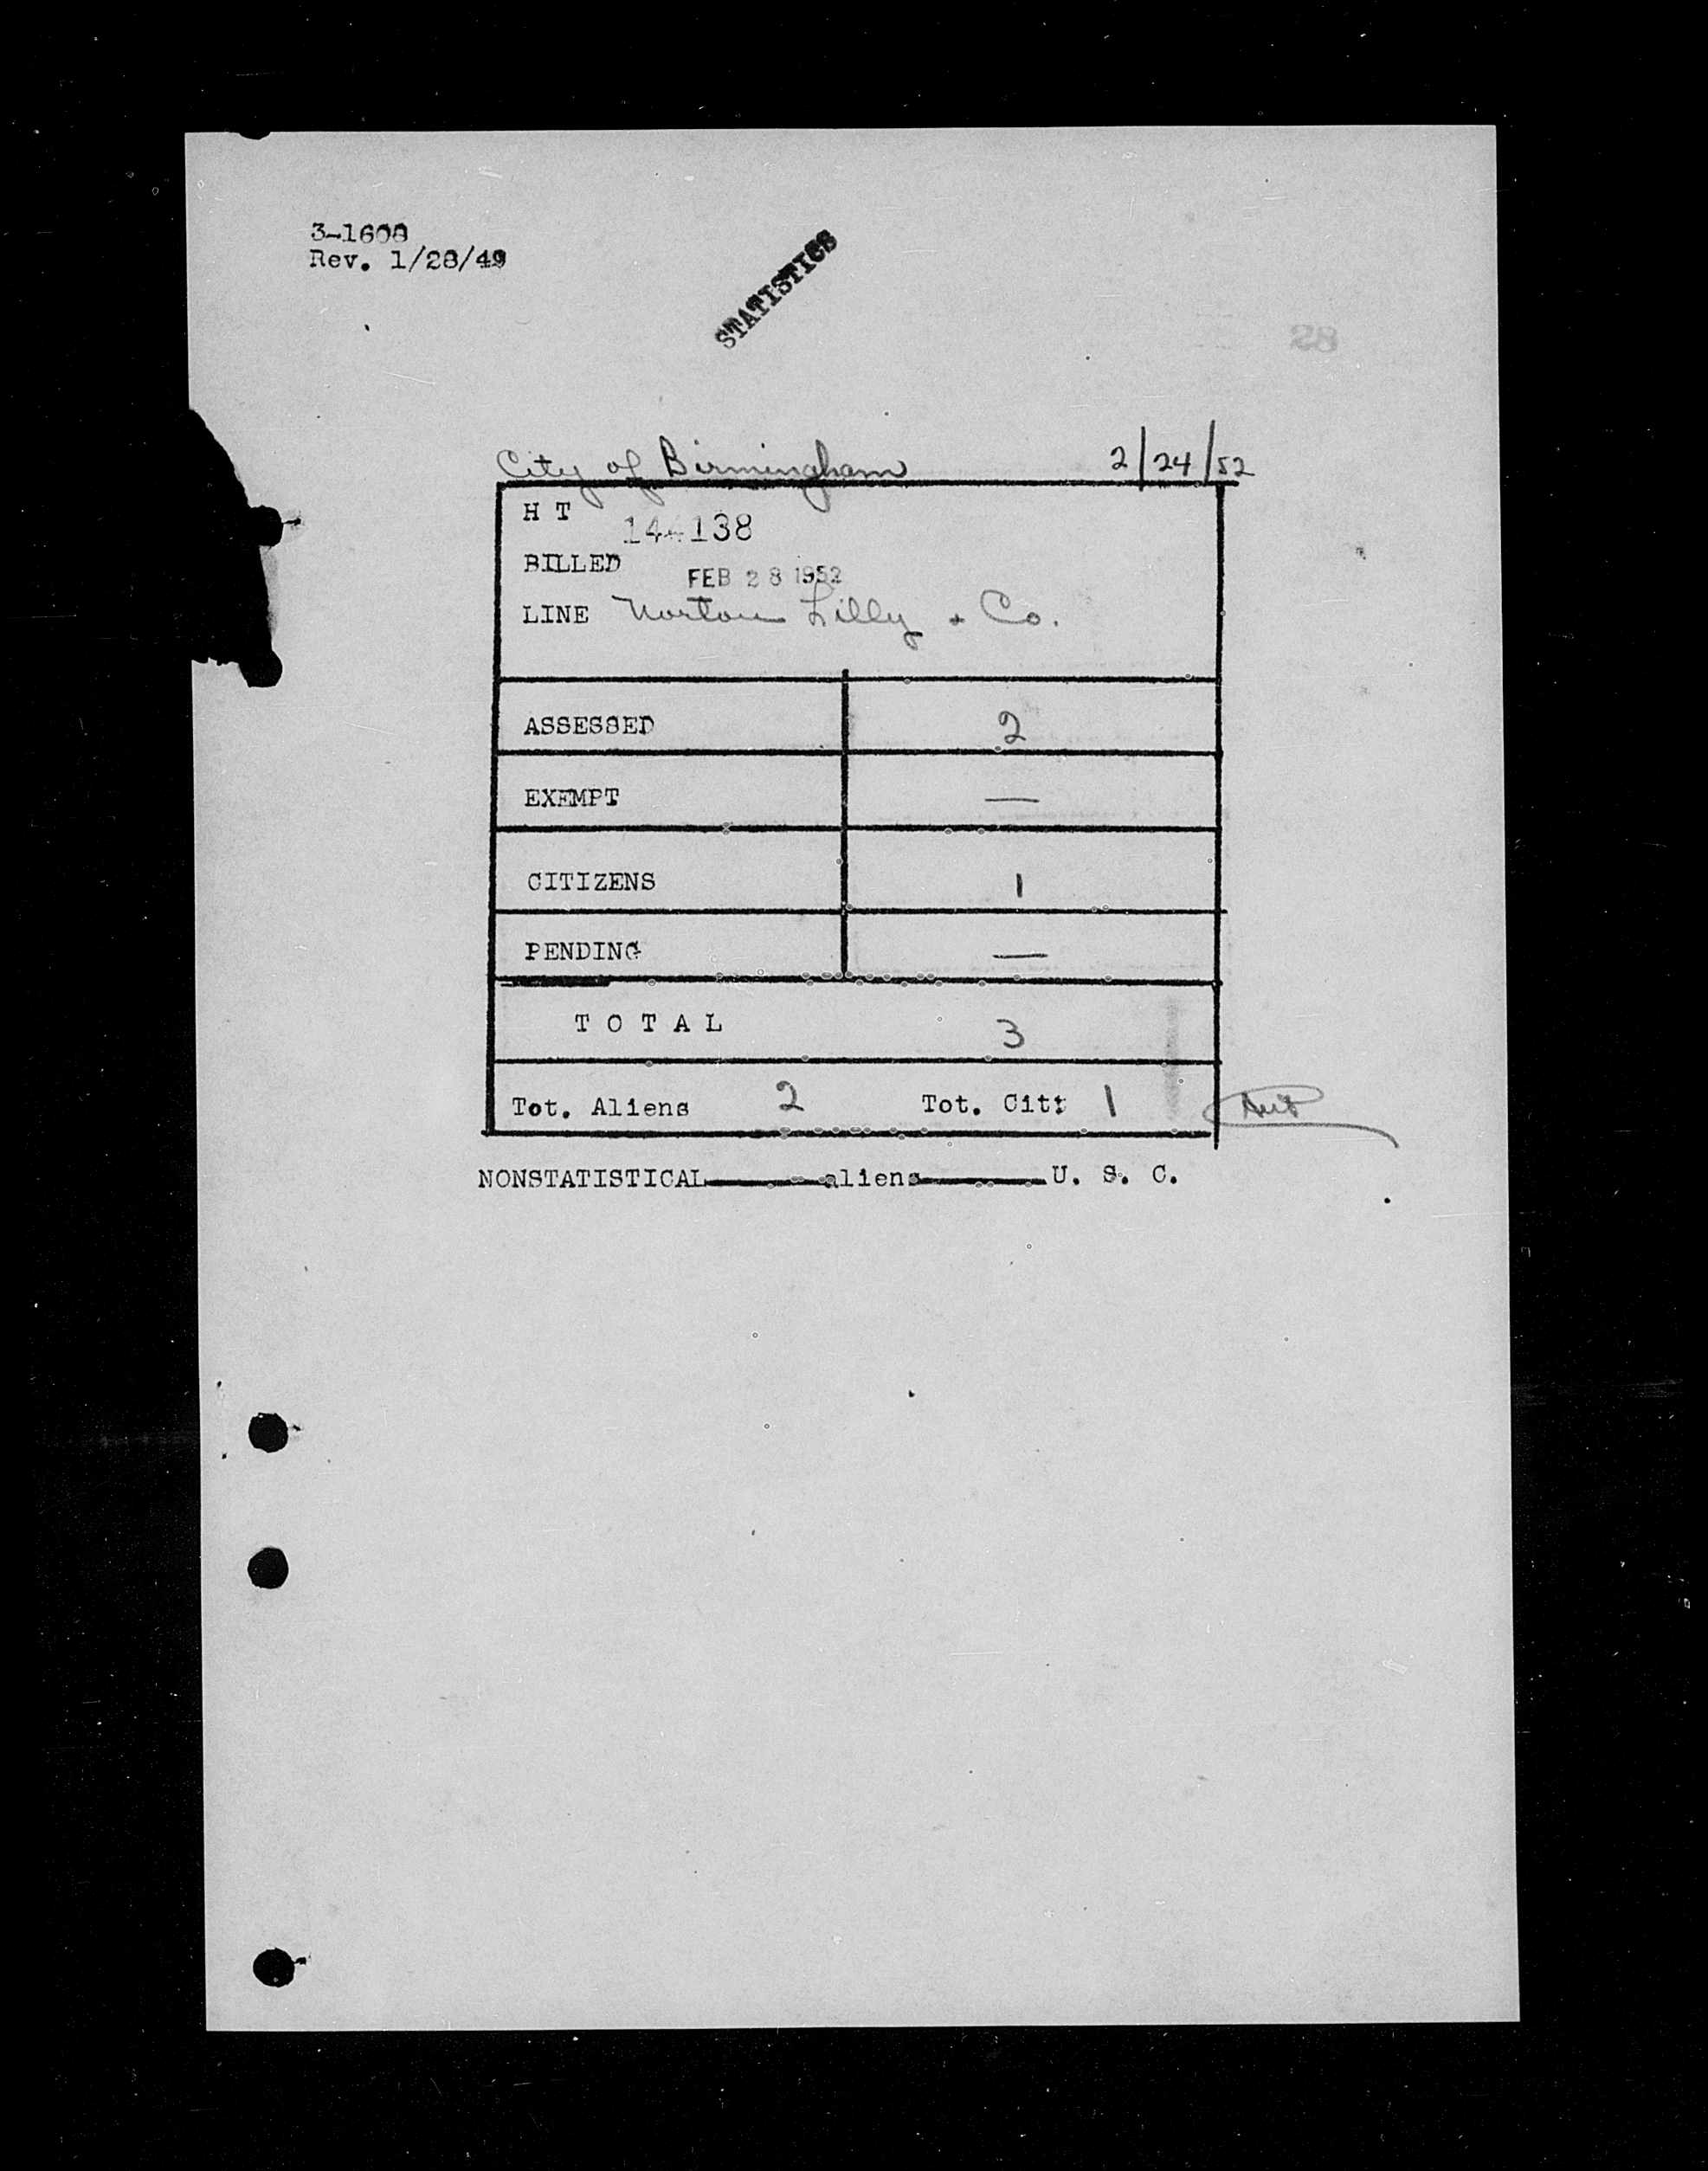 3-1608
Rev. 1/28/49
STATISTICS
28
City of Birmingham 2/24/52
H T 144138
BILLED FEB 28 1952
LINE Norton Lilly & Co.
ASSESSED 2
EXEMPT —
CITIZENS 1
PENDING —
T O T A L 3
Tot. Aliens 2 Tot. Citz 1
NONSTATISTICAL aliens U. S. C.